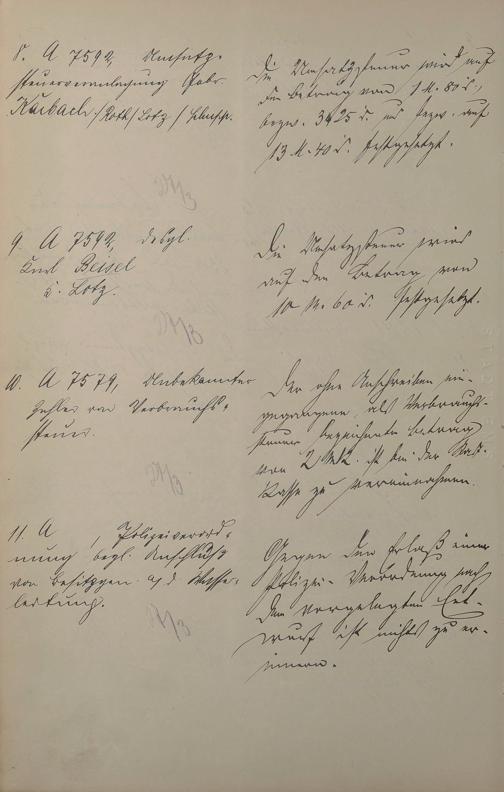 8. A 7592, Umsatz-
steuerveranlagung Gebr.
Karbach / Roth / Lotz /
Die Umsatzsteuer wird auf
den Betrag von 1 M. 80 d.,
bezw. 3425 d. und bezw. auf
13 M. 40 d. festgesetzt.
27/3
9. A 7592, desgl.
Karl Beisel
u. Lotz.
Die Umsatzsteuer wird
auf den Betrag von
10 M. 60 d. festgesetzt.
27/3
10. A 7579, Unbekannter
Zahler von Verbrauchs-
steuer.
Der ohne Anschreiben ein-
gegangene, als Verbrauchs-
steuer bezeichnete Betrag
von 2 M. ist bei der
Kasse zu vereinnahmen.
27/3
11. A , Polizeiverord-
nung bezl. Anschluss
von Besitzgen. a/d Wasser-
leitung.
Gegen den Erlaß einer
Polizei-Verordnung nach
dem vorgelegten Ent-
wurf ist nichts zu er-
innern.
27/3